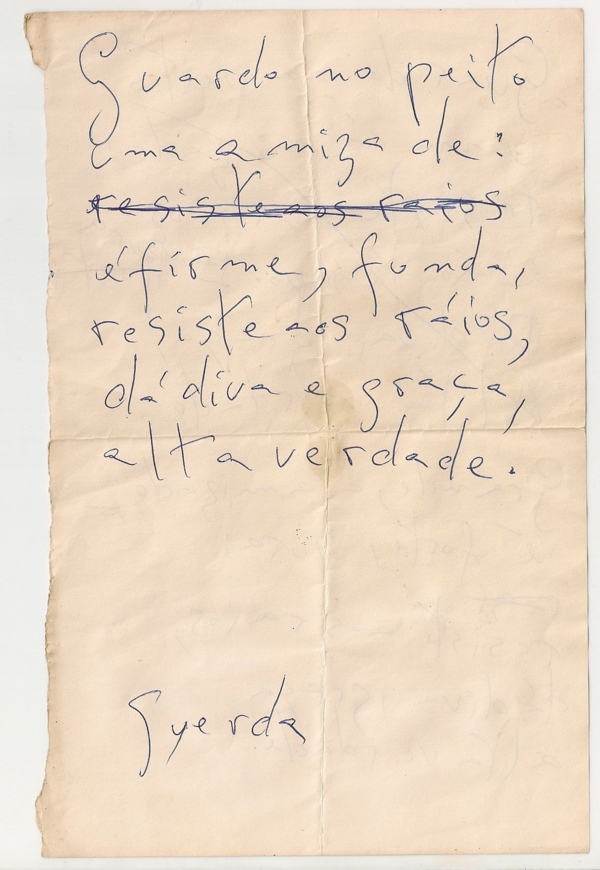 Guardo no peito
uma amizade:
resiste aos raios
é firme, funda,
resiste aos ráios,
dádiva e graça,
alta verdade.
Gyerda